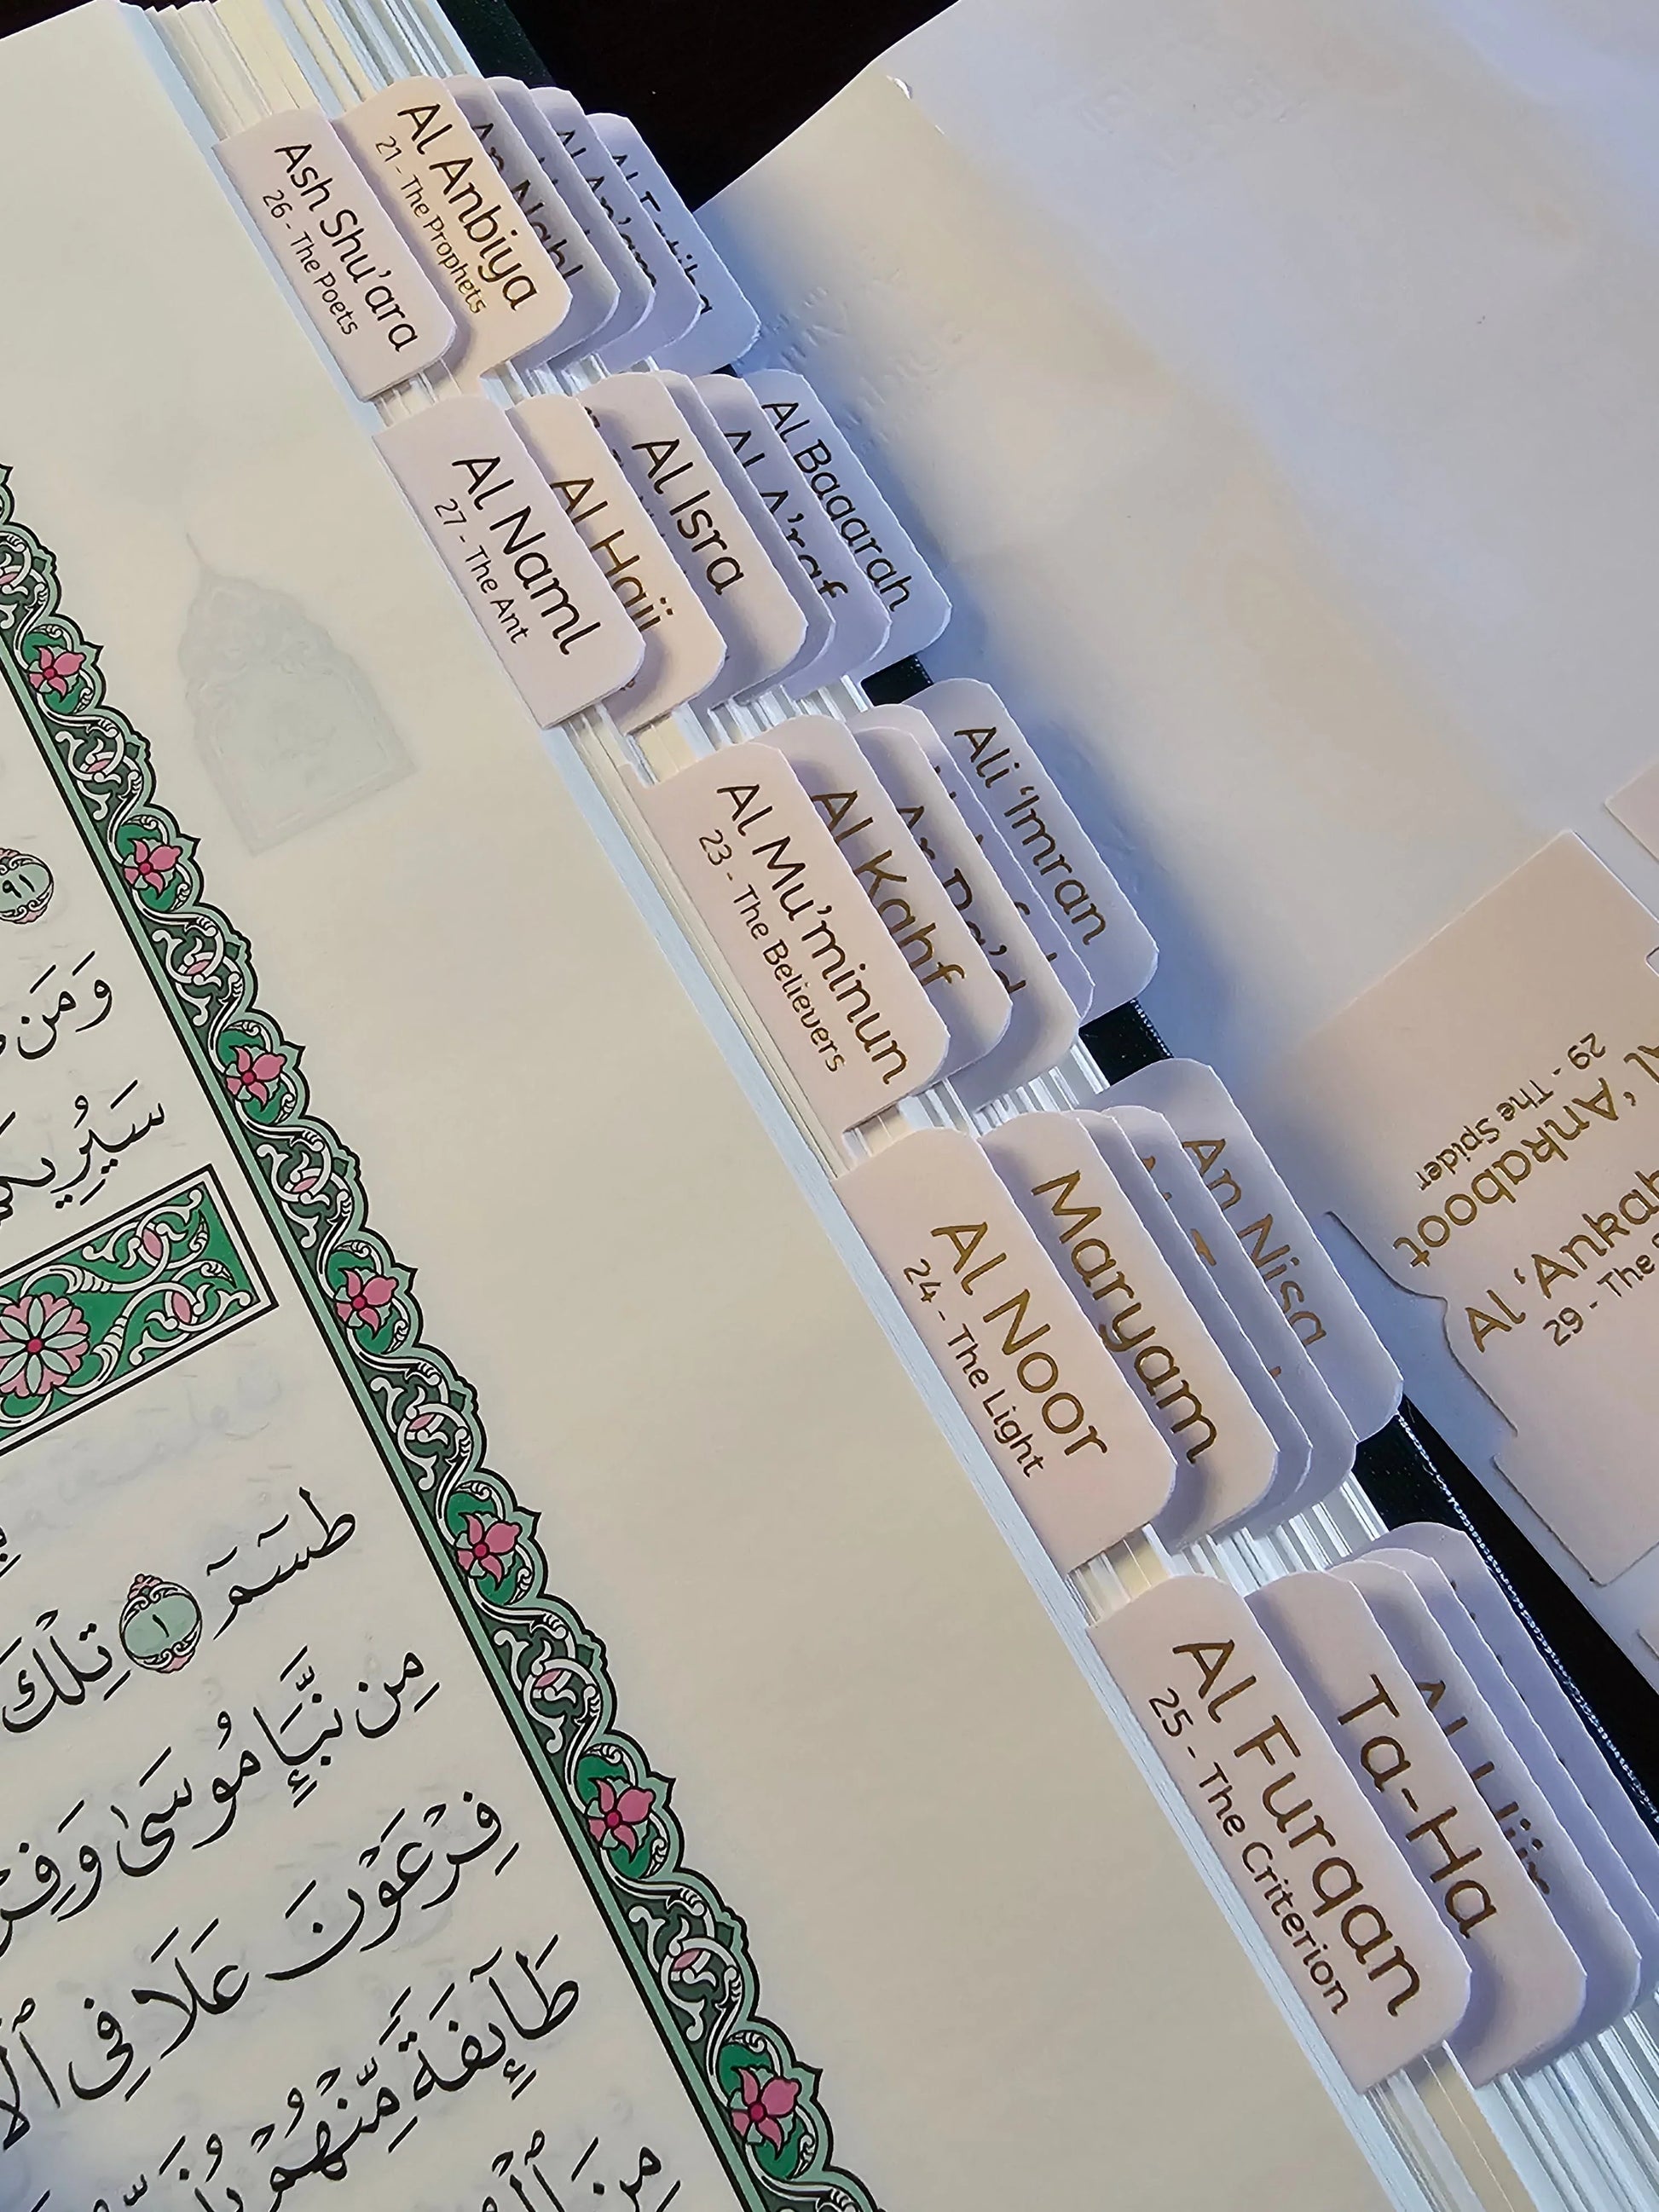 Ash Shu'ara
26 - The Poets
Al Anbiya
21 - The Prophets
An Nahl
Al An'am
Al Fatiha
Al Naml
27 - The Ant
Al Hajj
Al Isra
Al A'raf
Al Baqarah
Al Mu'minun
23 - The Believers
Al Kahf
Ar Ra'd
Ali 'Imran
Al Noor
24 - The Light
Maryam
An Nisa
Al Furqan
25 - The Criterion
Ta-Ha
Al Hijr
Al 'Ankaboot
29 - The Spider
Al 'Ankab
29 - The
٩١
وَمَن
سَيُرِيكُمْ
طسٓمٓ ١ تِلْكَ
مِن نَّبَإِ مُوسَىٰ وَفِرْ
فِرْعَوْنَ عَلَا فِي ٱلْأَ
طَآئِفَةً مِّنْهُمْ يُذَبِّ
مِنَ ٱلْ